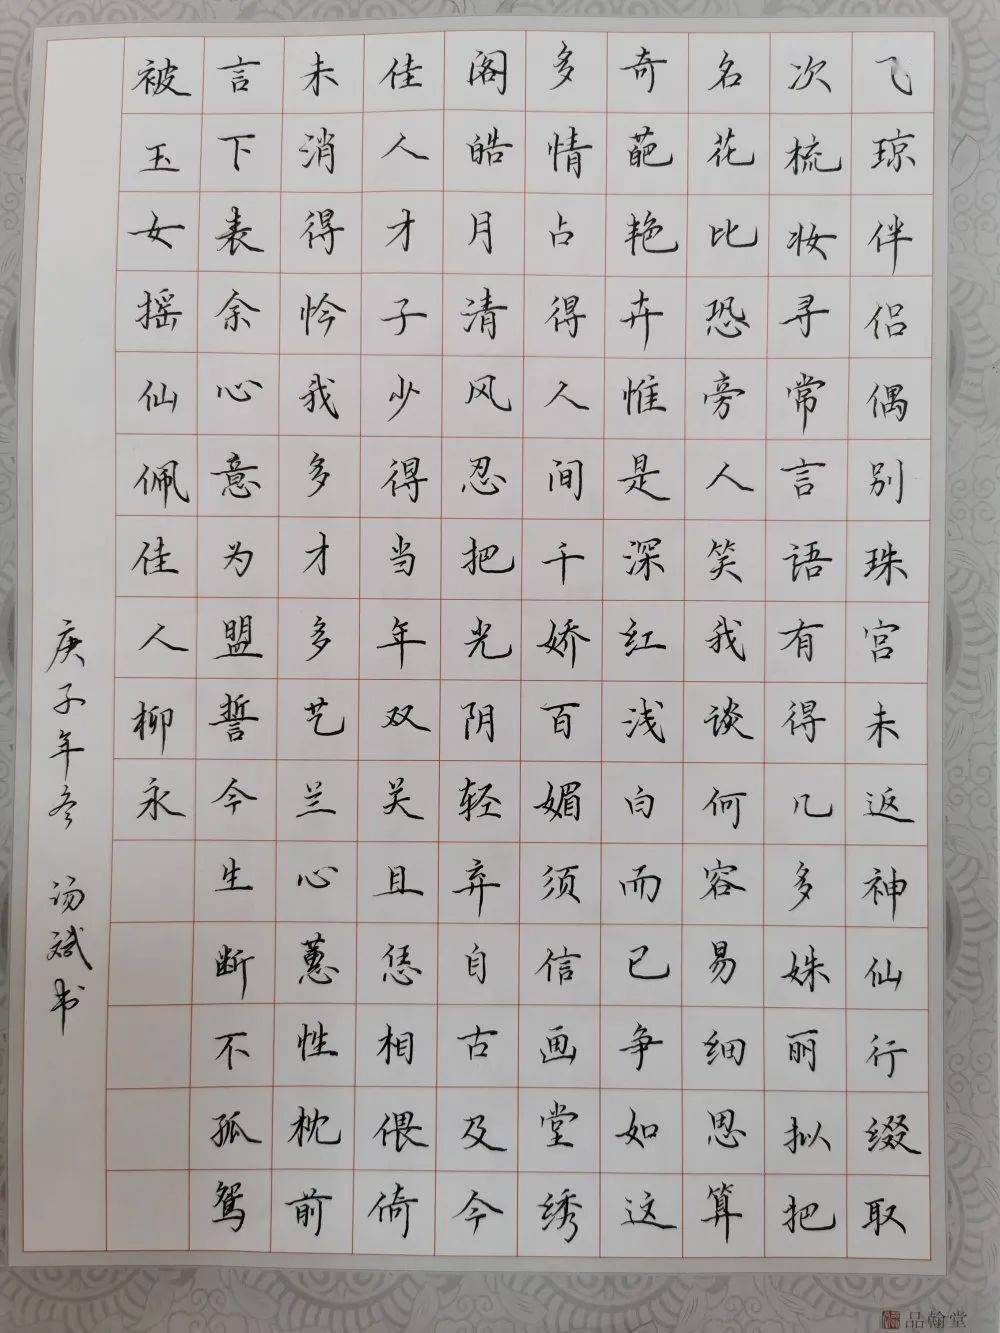 飞琼伴侣偶别珠宫未返神仙行缀取
次梳妆寻常言语有得几多姝丽拟把
名花比恐旁人笑我谈何容易细思算
奇葩艳卉惟是深红浅白而已争如这
多情占得人间千娇百媚须信画堂绣
阁皓月清风忍把光阴轻弃自古及今
佳人才子少得当年双美且恁相偎倚
未消得怜我多才多艺兰心蕙性枕前
言下表余心意为盟誓今生断不孤鸳
被玉女摇仙佩佳人柳永
庚子年冬 汤斌书
品翰堂